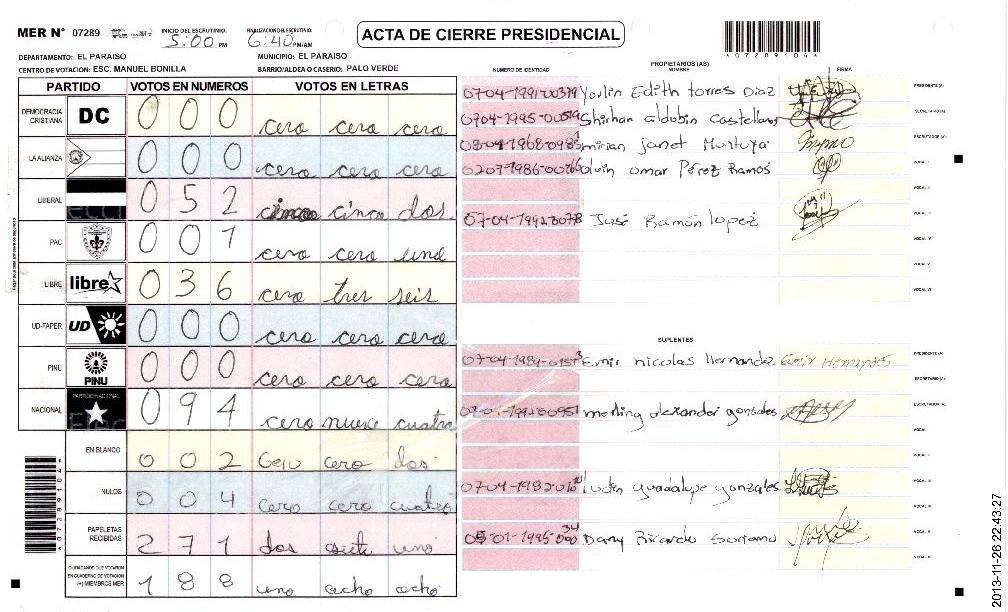 MER N° 07289
INICIO DEL ESCRUTINIO: 5:00 PM
FINALIZACION DEL ESCRUTINIO: 6:40 PM/AM
ACTA DE CIERRE PRESIDENCIAL
*07289104*
DEPARTAMENTO: EL PARAISO
MUNICIPIO: EL PARAISO
CENTRO DE VOTACION: ESC. MANUEL BONILLA
BARRIO/ALDEA O CASERIO: PALO VERDE
PARTIDO VOTOS EN NUMEROS VOTOS EN LETRAS
DEMOCRACIA CRISTIANA DC 0 0 0 cero cero cero
LA ALIANZA 0 0 0 cero cero cero
LIBERAL 0 5 2 cinco dos
PAC 0 0 1 cero cero uno
LIBRE libre 0 3 6 cero tres seis
UD-FAPER UD 0 0 0 cero cero cero
PINU PINU 0 0 0 cero cero cero
NACIONAL PARTIDO NACIONAL 0 9 4 cero nueve cuatro
EN BLANCO 0 0 2 cero dos
NULOS 0 0 4 cero cero cuatro
PAPELETAS RECIBIDAS 2 7 1 dos siete uno
CIUDADANOS QUE VOTARON EN CUADERNO DE VOTACION (+) MIEMBROS MER 1 8 8 uno ocho ocho
PROPIETARIOS (AS)
NUMERO DE IDENTIDAD NOMBRE FIRMA
Edith torres Diaz PRESIDENTE (A)
0704-1995- Castellanos SECRETARIO (A)
janet ESCRUTADOR (A)
0207-1986- omar Pérez Ramos VOCAL I
VOCAL II
José Ramón lopez VOCAL III
VOCAL IV
VOCAL V
VOCAL VI
SUPLENTES
Emir nicolas Hernandez Emir Hernandez PRESIDENTE (A)
SECRETARIO (A)
alexander gonzales ESCRUTADOR (A)
VOCAL I
VOCAL II
guadalupe gonzales VOCAL III
Dany Ricardo Soriano
2013-11-26 22:43:27